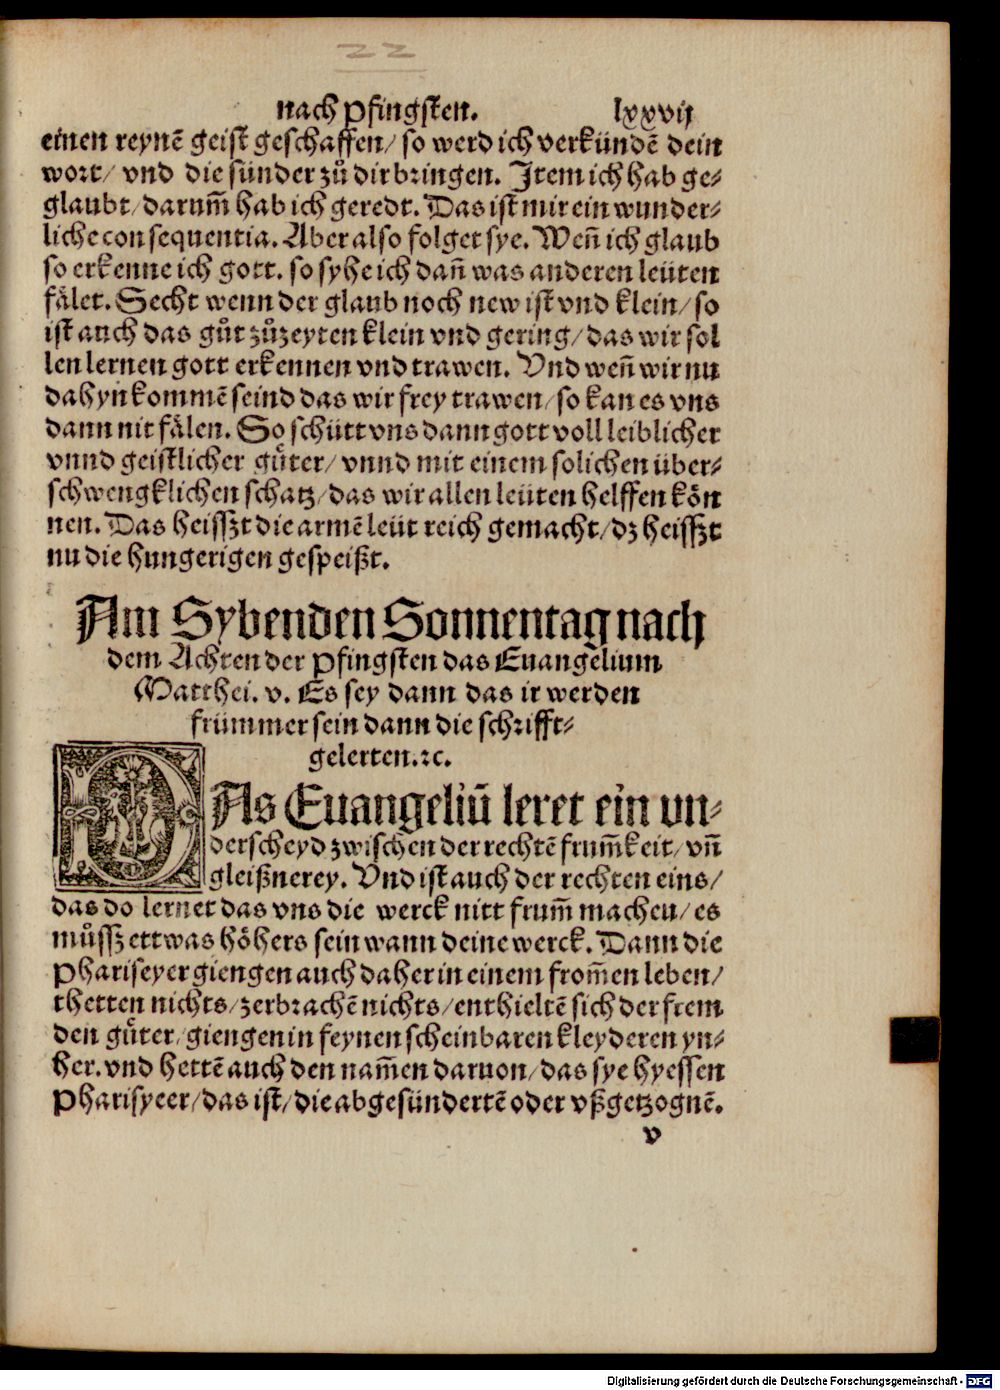 22
nach Pfingsten. lxxvij
einen reynē geist geschaffen/ so werd ich verkündē dein
wort/ vnd die sünder zů dir bringen. Item ich hab ge-
glaubt/ darum̃ hab ich geredt. Das ist mir ein wunder-
liche consequentia. Aber also folget sye. Weñ ich glaub
so erkenne ich gott. so syhe ich dañ was anderen leüten
fälet. Secht wenn der glaub noch new ist vnd klein/ so
ist auch das gůt zůzeyten klein vnd gering/ das wir sol
len lernen gott erkennen vnd trawen. Vnd weñ wir nu
dahyn kommē seind das wir frey trawen/ so kan es vns
dann nit fälen. So schütt vns dann gott voll leiblicher
vnnd geistlicher gůter/ vnnd mit einem solichen über-
schwengklichen schatz/ das wir allen leüten helffen kön
nen. Das heisszt die armē leüt reich gemacht/ dz heisszt
nu die hungerigen gespeißt.
Am Sybenden Sonnentag nach
dem Achten der Pfingsten das Euangelium
Matthei. v. Es sey dann das ir werden
frümmer sein dann die schrifft-
gelerten.ꝛc.
DAs Euangeliū leret ein vn-
derscheyd zwischen der rechtē frum̃keit/ vñ
gleißnerey. Vnd ist auch der rechten eins/
das do lernet das vns die werck nitt frum̃ machen/ es
můssz ettwas höhers sein wann deine werck. Dann die
Phariseyer giengen auch daher in einem from̃en leben/
thetten nichts/ zerbrachē nichts/ enthieltē sich der frem
den gůter/ giengen in feynen scheinbaren kleyderen yn-
her. vnd hettē auch den nam̃en daruon/ das sye hyessen
Pharisyeer/ das ist/ die abgesündertē oder vßgetzognē.
v
Digitalisierung gefördert durch die Deutsche Forschungsgemeinschaft - DFG